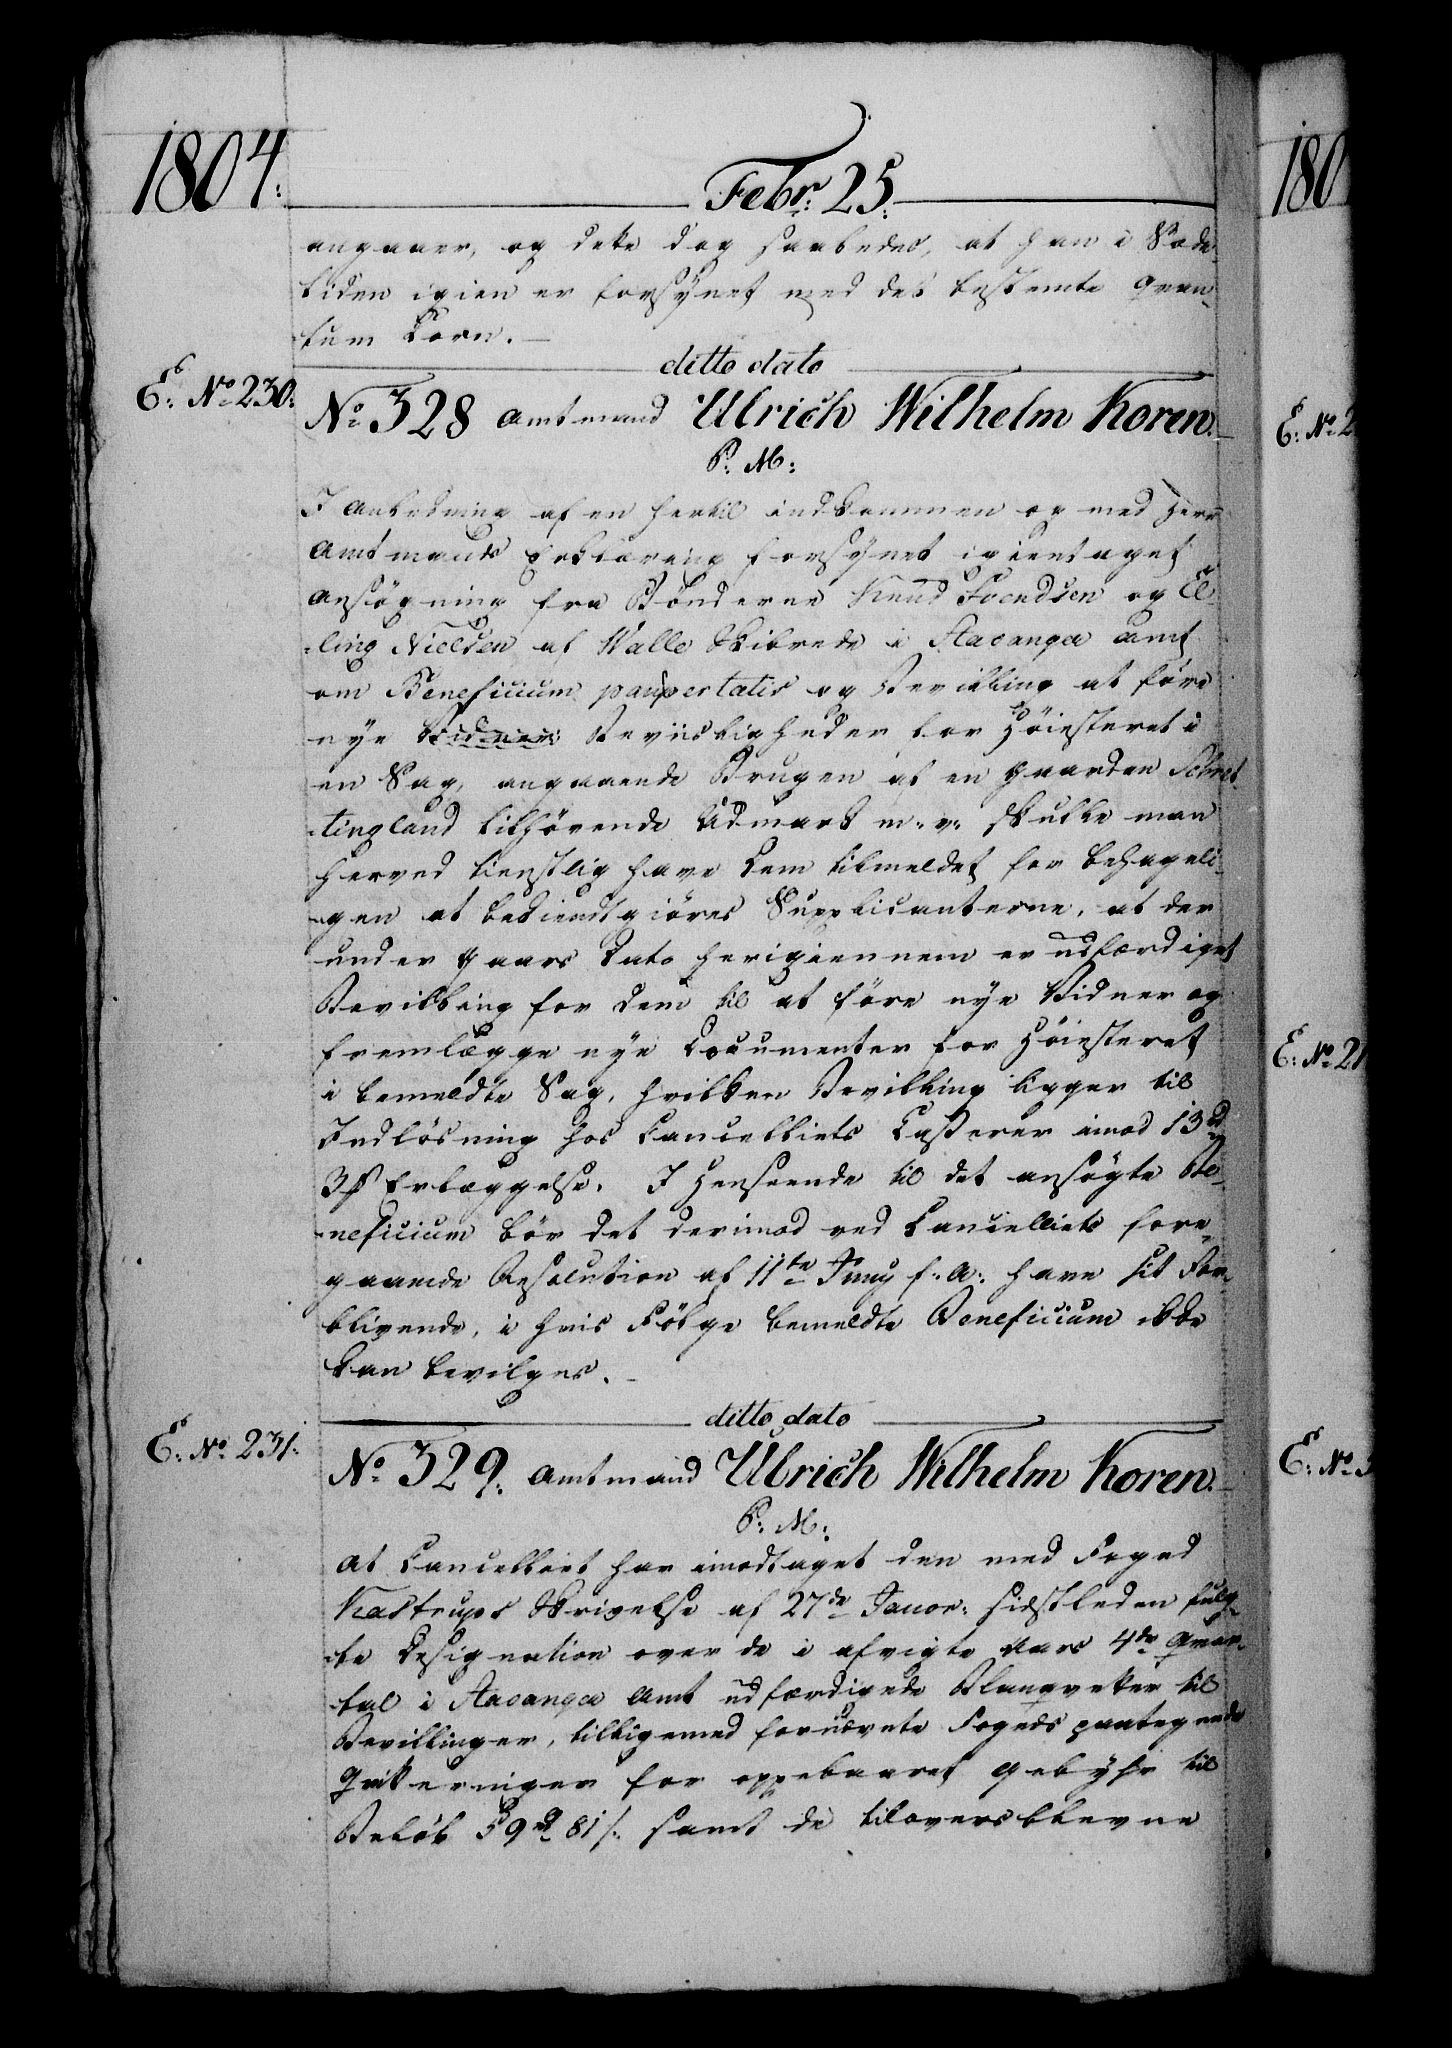 1804.
Febr: 25.
angaaer, og dette dog saaledes, at han i Sæde-
tiden igien er forsynet med det bestemte Qvan-
tum Korn.
ditto dato
E: No 230:
No 328 Amtmand Ulrich Wilhelm Koren.
P: M:
I Anledning af en hertil indkommen og med Herr
Amtmands Erklæring forsynet igientaget
Ansøgning fra Bønderne Knud Svendsen og El-
ling Nielsen af Walle Skibrede i Stavanger Amt
om Beneficium paupertatis og Bevilling at føre
nye Vidner Beviisligheder for Høiesteret i
en Sag, angaaende Brugen af en Gaarden
tingland tilhørende Udmark m: v: skulle man
herved tienstlig have Dem tilmeldet for behageli-
gen at bekiendtgiøres Supplicanterne, at der
under Gaars Dato herigiennem er udfærdiget
Bevilling for dem til at føre nye Vidner og
fremlægge nye Documenter for Høiesteret
i bemeldte Sag, hvilken Bevilling ligger til
Indløsning hos Cancelliets Casserer imod 13 rd
3 s Erlæggelse. I Henseende til det ansøgte Be-
neficium bør det derimod ved Cancelliets fore-
gaaende Resolution af 11te Juny f: A: have sit For-
blivende, i hvis Følge bemeldte Beneficium ikke
kan bevilges.
ditto dato
E: No 231:
No 329. Amtmand Ulrich Wilhelm Koren.
P: M:
At Cancelliet har imodtaget den med Foged
Kastrups Skrivelse af 27de Januar: sidstleden fulg-
te Designation over de i afvigte Aars 4de Qvar-
tal i Stavanger Amt udfærdigede Blanqvetter til
Bevillinger, tilligemed fornævnte Fogeds paategnede
Qvitteringer for oppebaaret Gebyhr til
Beløb 59 rd 81 s: samt de tiloversblevne
180
E: No 2
E: No 2
E: No